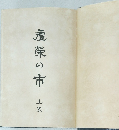 虚榮の市
上卷